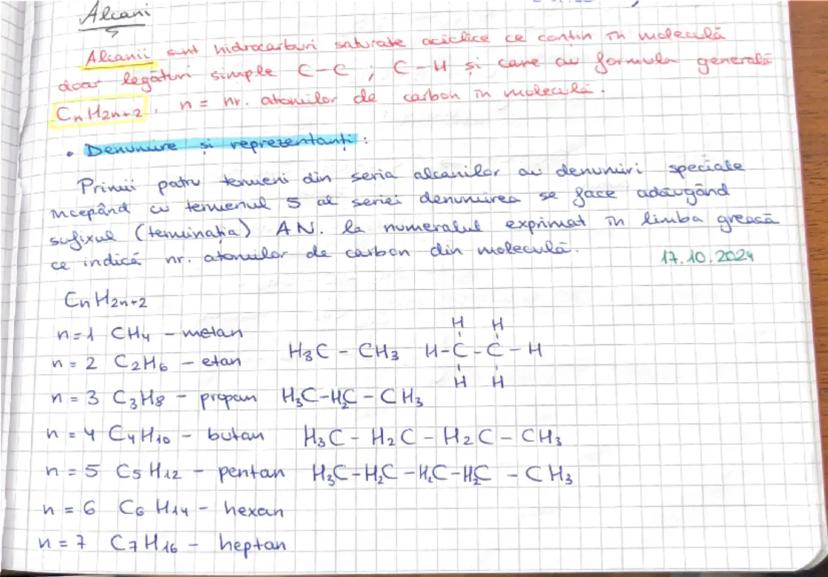 Alcani
Alcanii sunt hidrocarburi saturate aciclice ce conțin în moleculă
doar legături simple C-C ; C-H și care au formula generală
CnH2n+2, n = nr. atomilor de carbon în moleculă.
• Denumire și reprezentanți:
Primii patru termeni din seria alcanilor au denumiri speciale
începând cu termenul 5 al seriei denumirea se face adăugând
sufixul (terminația) AN. la numeralul exprimat în limba greacă
ce indică nr. atomilor de carbon din moleculă.
17.10.2024
CnH2n+2
n=1 CH4 - metan
H H
n = 2 C2H6 - etan H3C - CH3 H-C-C-H
H H
n = 3 C3H8 - propan H3C-H2C-CH3
n = 4 C4H10 - butan H3C-H2C-H2C-CH3
n = 5 C5H12 - pentan H3C-H2C-H2C-H2C-CH3
n = 6 C6H14 - hexan
n = 7 C7H16 - heptan